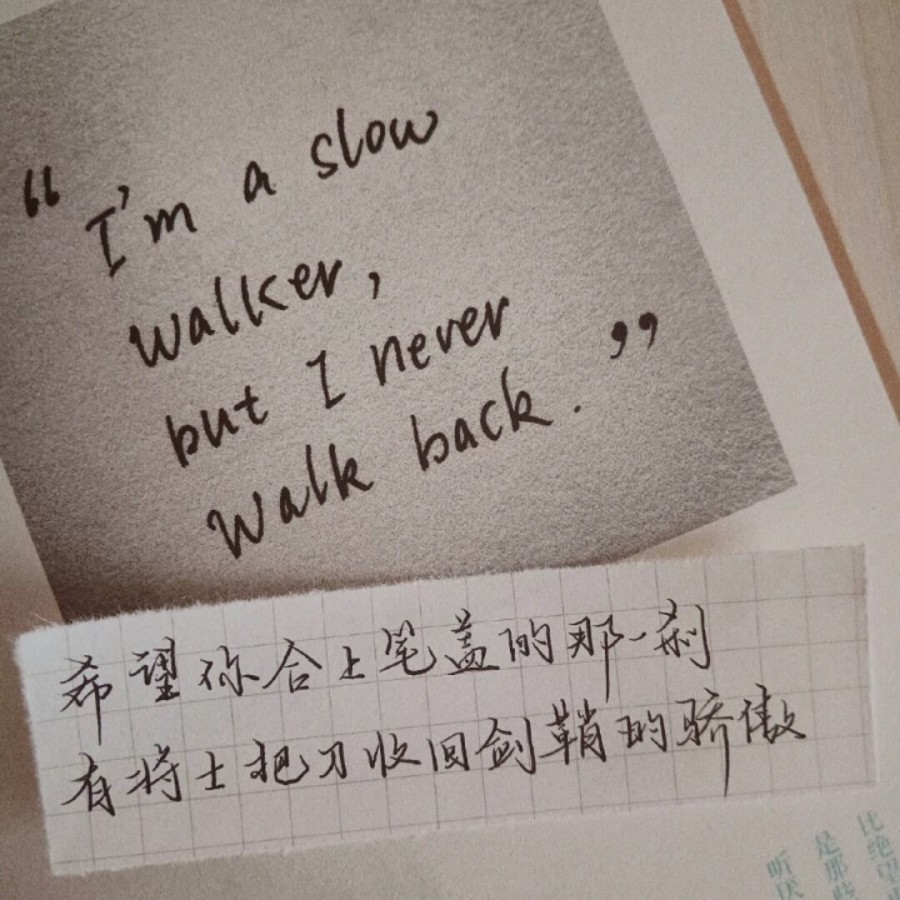 “ I'm a slow
walker,
but I never
walk back. ”
希望你合上笔盖的那一刹
有将士把刀收回剑鞘的骄傲
比绝望
是那些
听厌